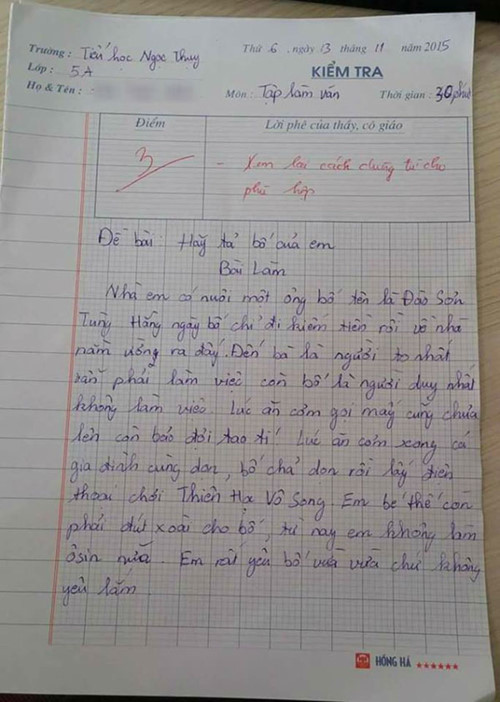 Trường : Tiểu học Ngọc Thụy
Thứ 6 , ngày 13 tháng 11 năm 2015
Lớp : 5A
KIỂM TRA
Họ & Tên :
Môn : Tập làm văn
Thời gian : 30 phút
Điểm
Lời phê của thầy, cô giáo
3
- Xem lại cách dùng từ cho
phù hợp
Đề bài: Hãy tả bố của em
Bài Làm
Nhà em có nuôi một ông bố tên là Đào Sơn
Tùng Hằng ngày bố chỉ đi kiếm tiền rồi về nhà
nằm ườn ra đấy. Đến bà là người to nhất
vẫn phải làm việc còn bố là người duy nhất
không làm việc. Lúc ăn cơm gọi mãy cũng chưa
lên còn bảo đợi tao tí. Lúc ăn cơm xong cả
gia đình cùng dọn, bố chả dọn rồi lấy điên
thoại chơi Thiên Hạ Vô Song. Em bé thế còn
phải đút xoài cho bố, từ nay em không làm
ôsin nữa. Em rất yêu bố vừa vừa chứ không
yêu lắm
HỒNG HÀ